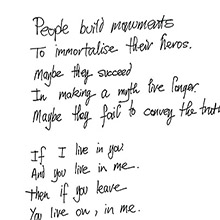 People build monuments
To immortalise their heros.
Maybe they succeed
In making a myth live longer.
Maybe they fail to convey the truth
If I live in you
And you live in me.
Then if you leave
You live on, in me.